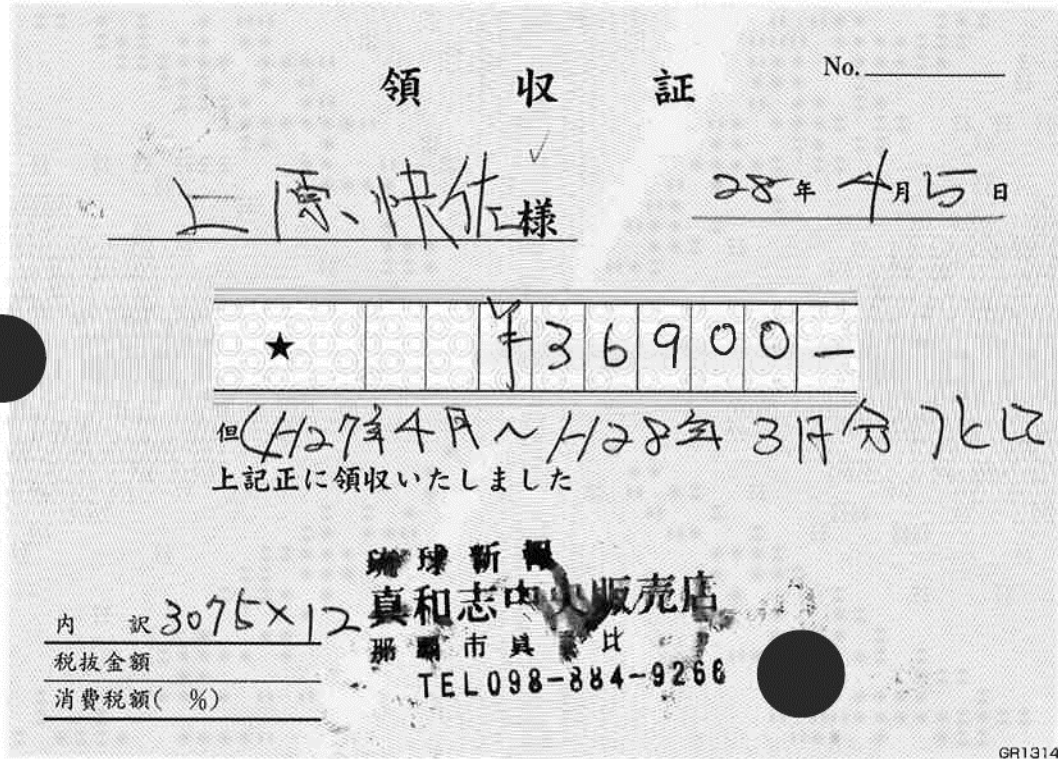 領収証
No.
上原快佐様
28年4月5日
★ ¥36900-
但(H27年4月~H28年3月分)として
上記正に領収いたしました
琉球新報
真和志中央販売店
那覇市真 比
TEL098-884-9266
内訳 3075×12
税抜金額
消費税額( %)
GR1314